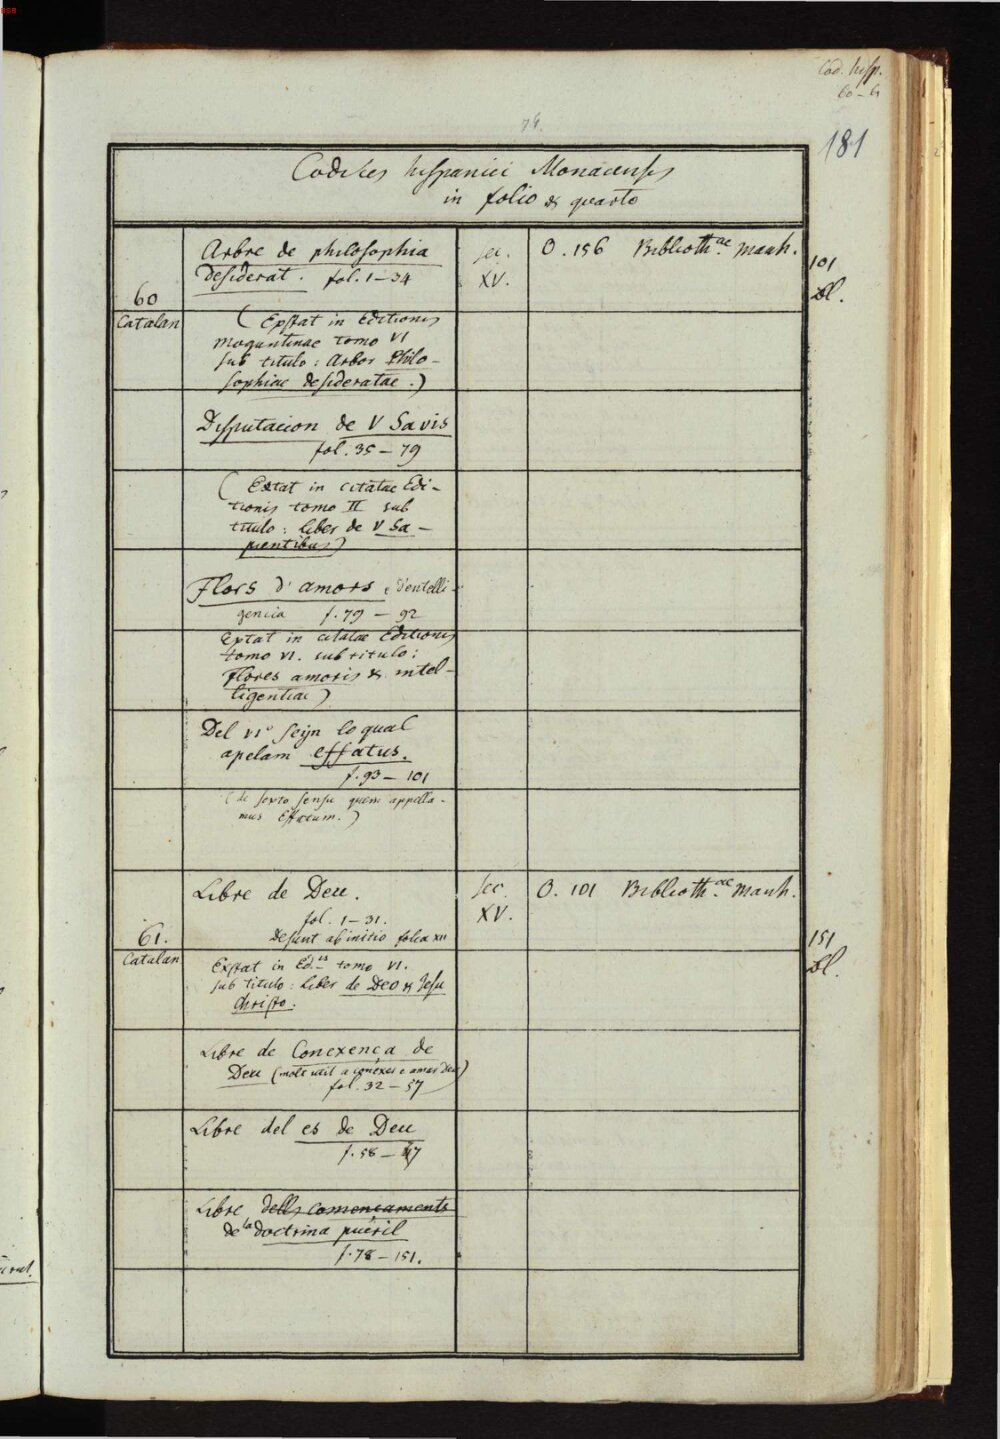 Cod. hisp.
60-61
181
Codices hispanici Monacenses
in folio & quarto
Arbre de philosophia
desiderat. fol. 1-34
sec.
XV.
O. 156 Biblioth.ae Manh.
101
Bl.
60
Catalan
(Exstat in Editionis
moguntinae tomo VI
sub titulo: Arbor Philo-
sophiae desideratae.)
Disputacion de V Savis
fol. 35-79
(Extat in citatae Edi-
tionis tomo II sub
titulo: liber de V Sa-
pientibus)
Flors d'amors e d'entelli-
gencia f. 79-92
Extat in citatae Editionis
tomo VI. sub titulo:
Flores amoris & intel-
ligentiae)
Del VIº seijn lo qual
apelam effatus.
f. 93-101
(de sexto sensu quem appella-
mus Effatum.)
Libre de Deu.
fol. 1-31.
desunt ab initio folia XII
sec.
XV.
O. 101 Biblioth.ae Manh.
151
Bl.
61.
Catalan
Exstat in Ed.is tomo VI.
sub titulo: Liber de Deo & Jesu
Christo.
Libre de Conexença de
Deu (molt util a conexer e amar Deu)
fol. 32-57
Libre del es de Deu
f. 58-77
Libre dells començaments
de la doctrina pueril
f. 78-151.